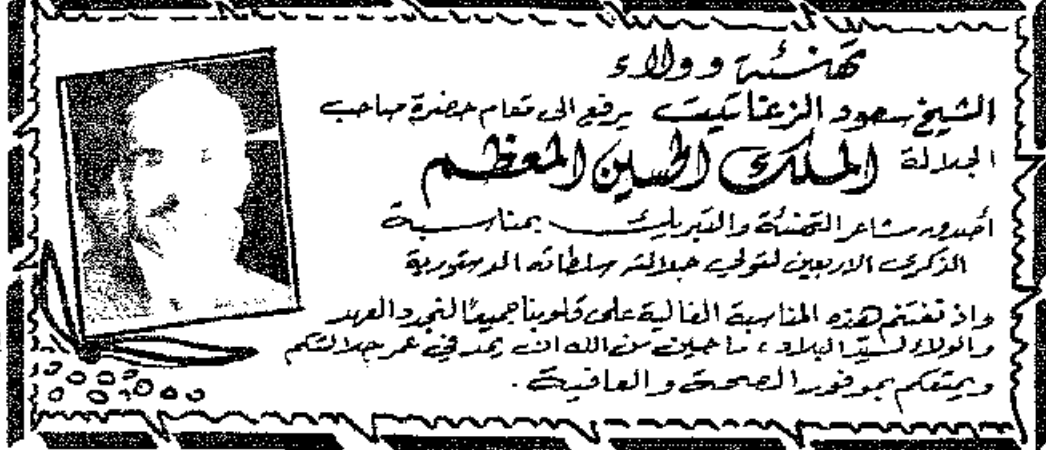 تهنئة وولاء
الشيخ سعود الزعتا تكيت يرفع الى مقام حضرة صاحب
الجلالة الملك الحسين المعظم
أصدق مشاعر التهنئة والتبريك بمناسبة
الذكرى الاربعين لتولي جلالته سلطاته الدستورية
واذ نغتنم هذه المناسبة الغالية على قلوبنا جميعًا لنجدد العهد
والولاء لسيّد البلاد، سائلين من الله ان يمد في عمر جلالتكم
ويمتعكم بموفور الصحة والعافية.